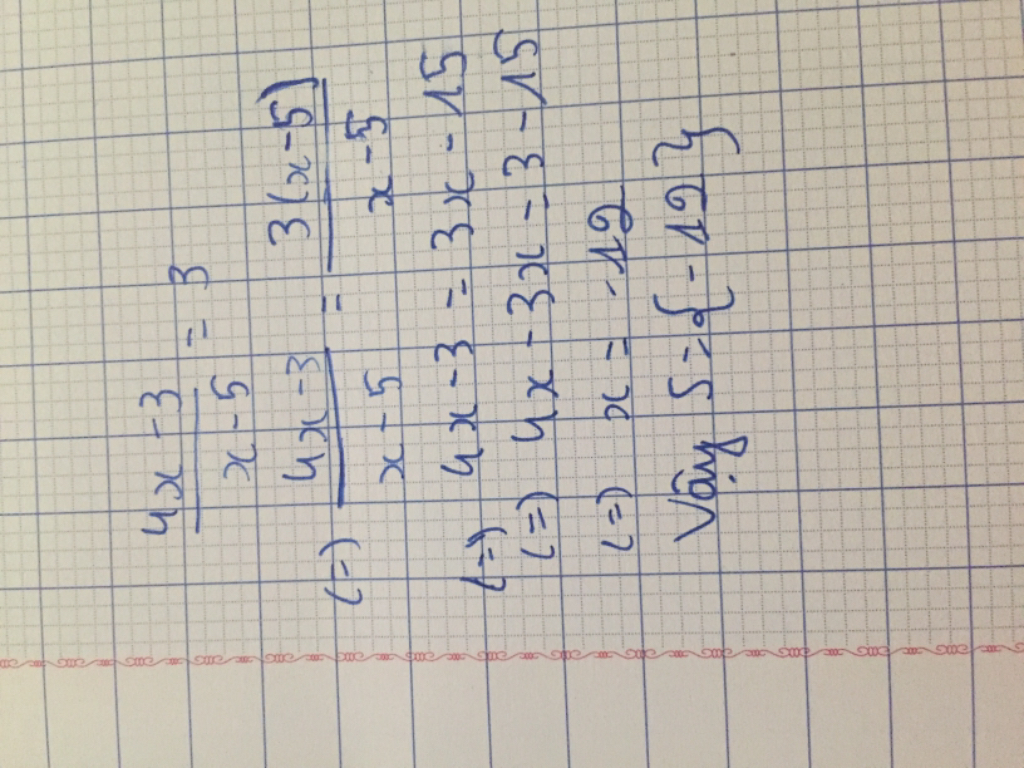 (4x-3)/(x-5) = 3
(=) (4x-3)/(x-5) = 3(x-5)/(x-5)
(=) 4x-3 = 3x-15
(=) 4x-3x = 3-15
(=) x = -12
Vậy S = {-12}